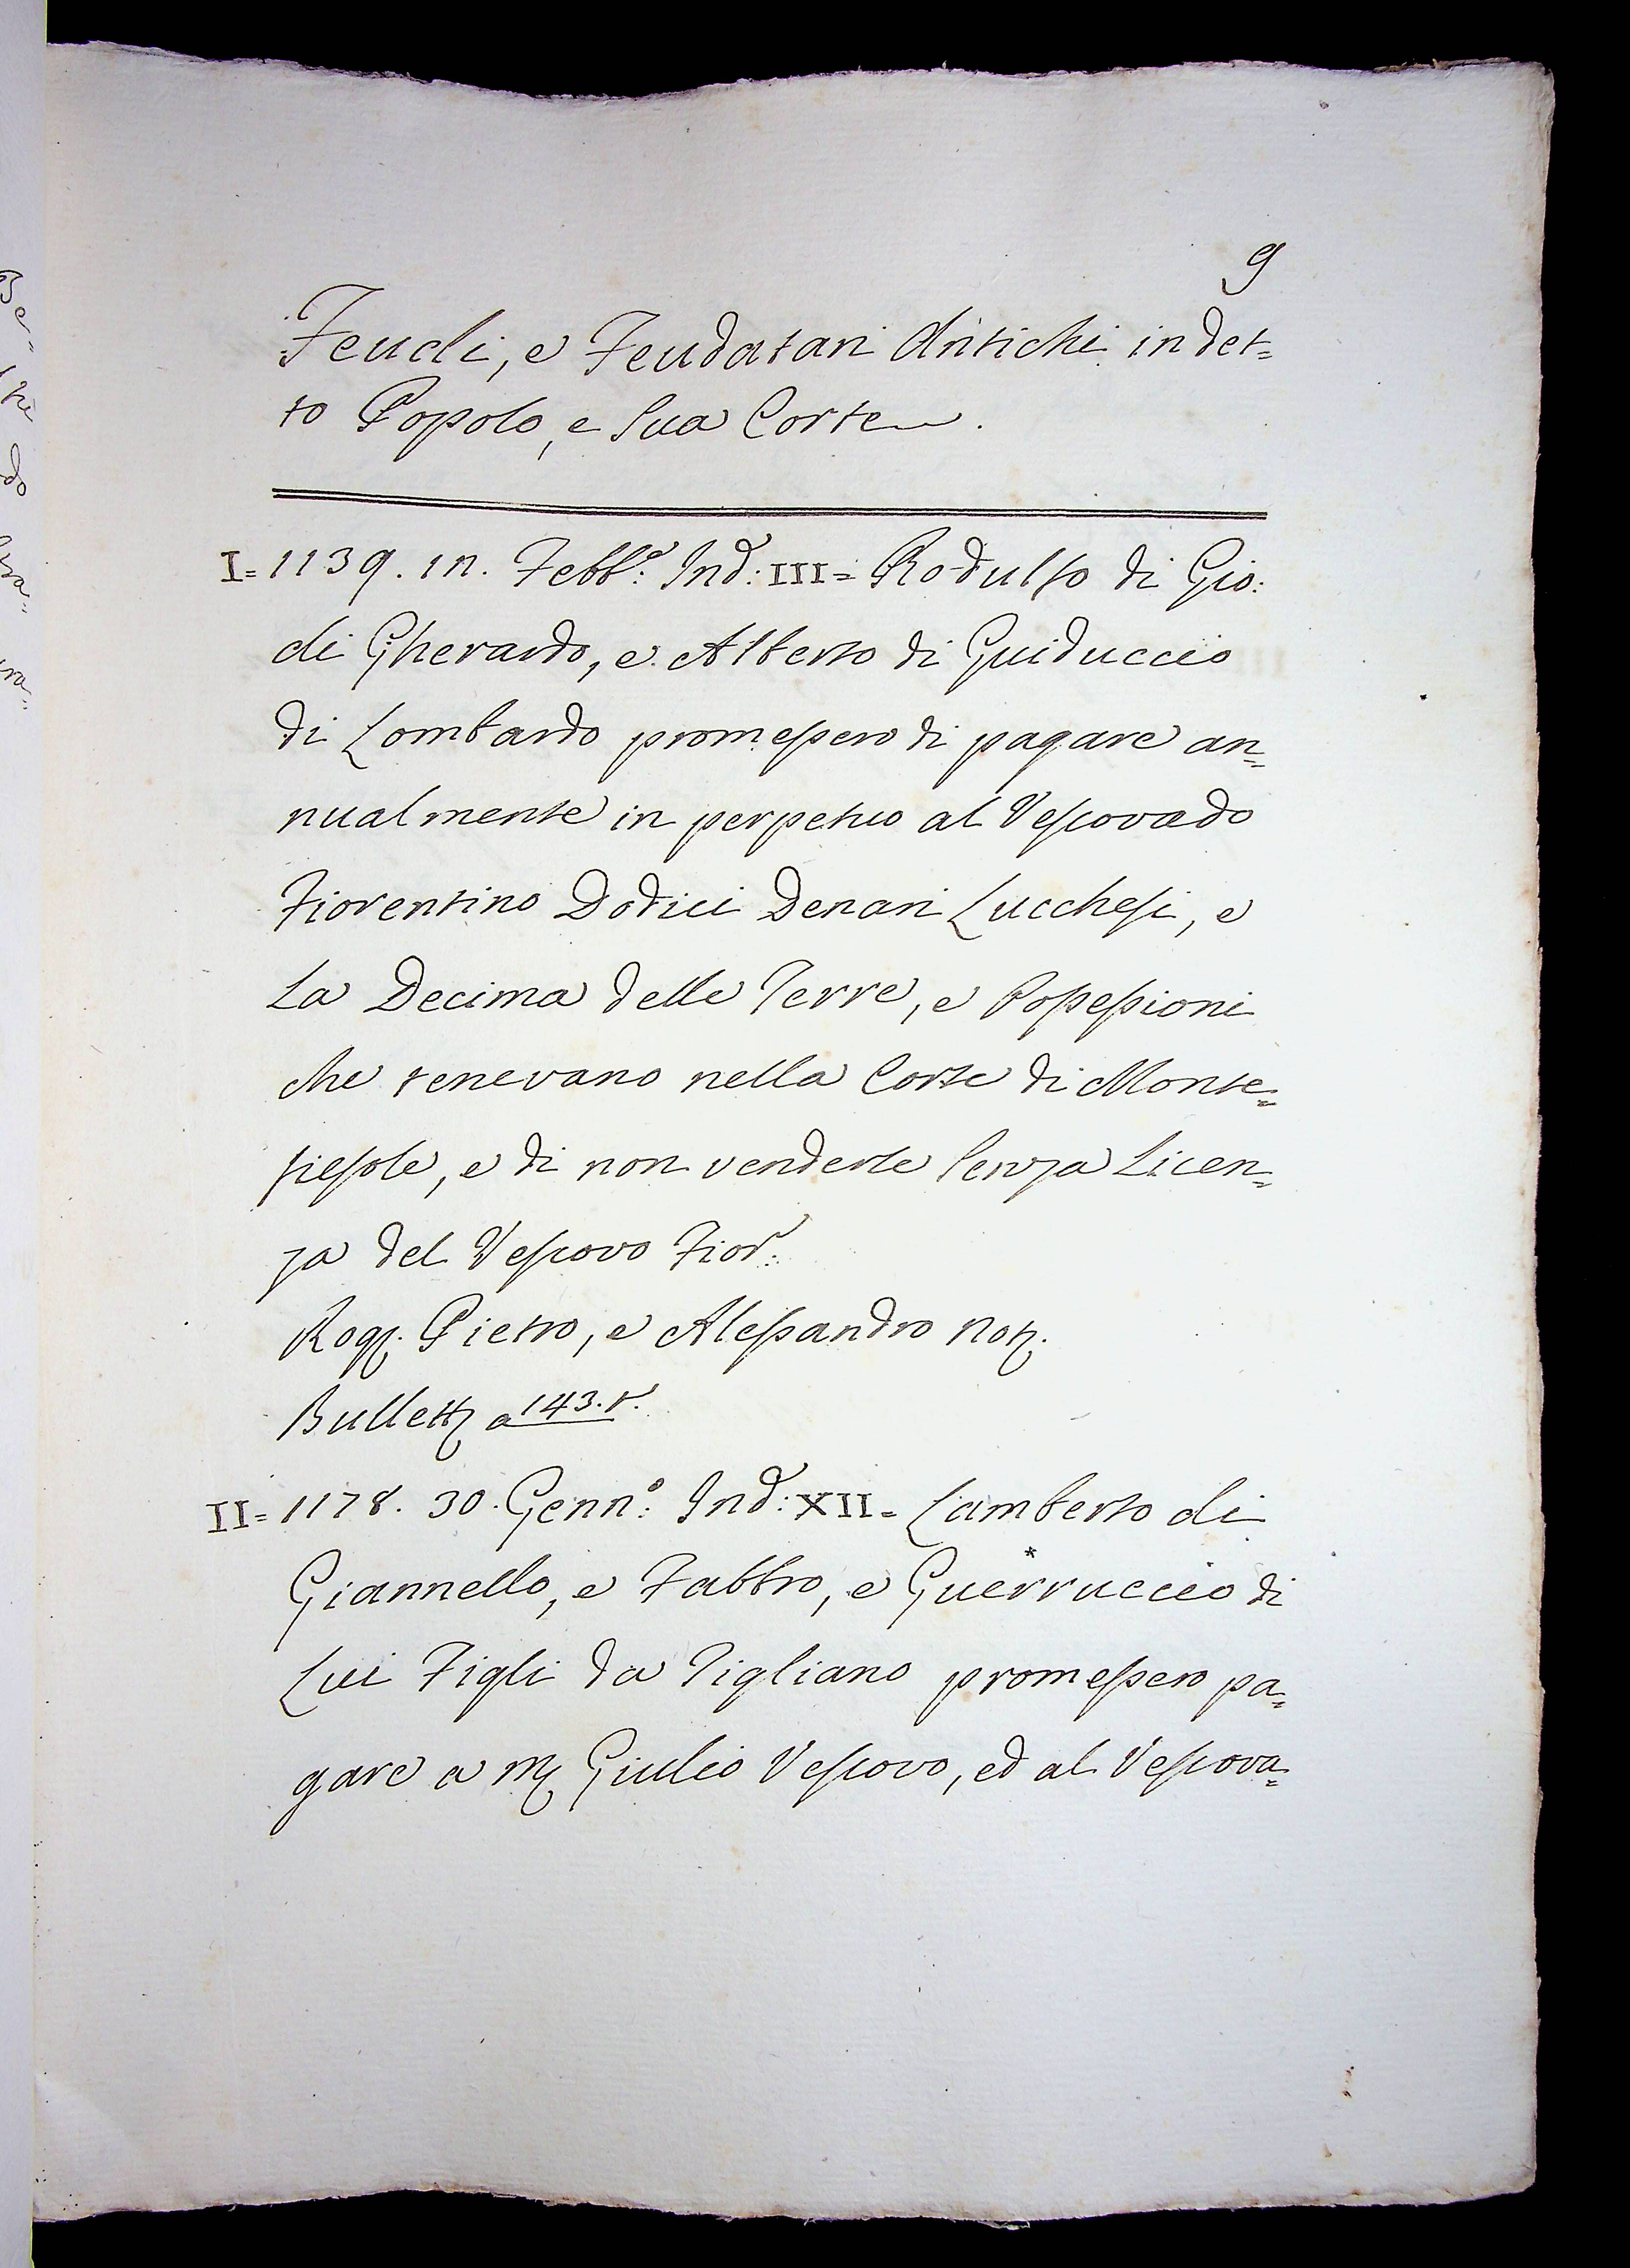 9
Feudi, e Feudatari Antichi in det=
to Popolo, e Sua Corte.
I= 1139. in. Febb.º: Ind: III= Rodulfo di Gio:
di Gherardo, e Alberto di Guiduccio
di Lombardo promessero di pagare an=
nualmente in perpetuo al Vescovado
Fiorentino Dodici Denari Lucchesi, e
La Decima delle Terre, e Possessioni
che tenevano nella Corte di Monte=
fiesole, e di non venderle Senza Licen=
za del Vescovo Fior:
Rog. Pietro, e Alessandro Not.
Bullett. a 143. t.
II= 1178. 30. Genn.º: Ind: XII= Lamberto di
Giannello, e Fabbro, e Guerruccio * di
Lui Figli da Tigliano promessero pa=
gare a M. Giulio Vescovo, ed al Vescova=